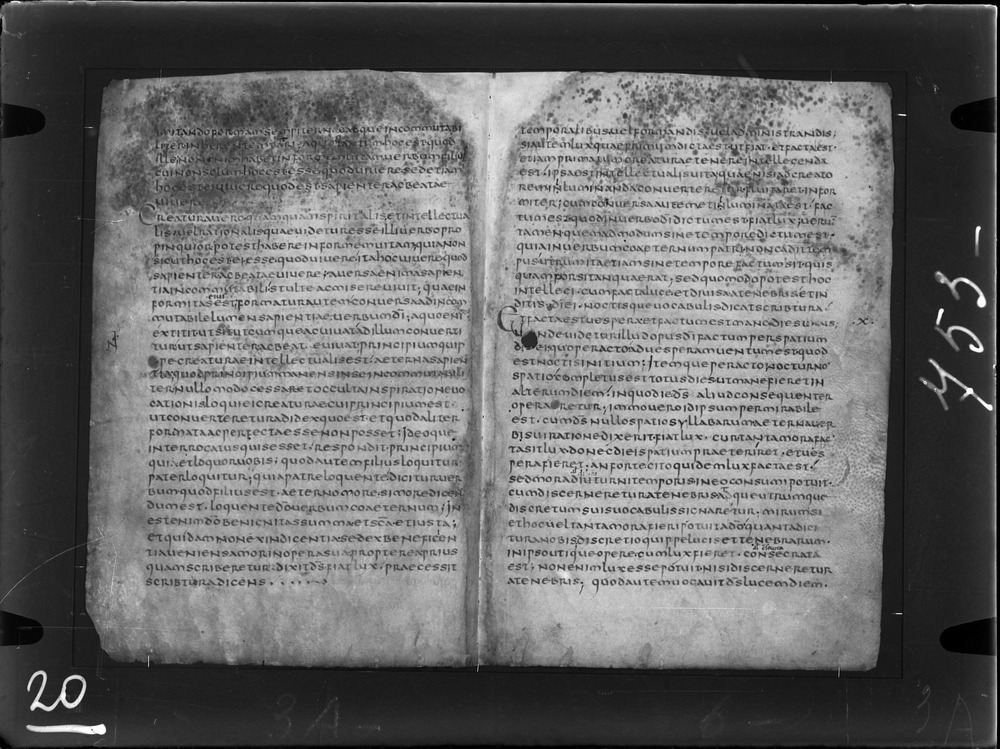 imitando formam sempiterne atque incommutabi
liter inherentem
ille non enim habet informem uitam uerbum filius
cui non solum hoc est esse quod uiuere sed etiam
hoc est uiuere quod est sapienter ac beatae
uiuere
Creatura uero quamquam spiritalis et intellectua
lis uel rationalis quae uidetur esse illi uerbo pro
pinquior potest habere informem uitam quia non
sicut hoc est ei esse quod uiuere ita hoc uiuere quod
sapienter ac beatae uiuere; auersa enim a sapien
tia incommutabili stulte ac misere uiuit, quae in
formitas est; formatur autem conuersa ad incom
mutabile lumen sapientiae uerbum dī; a quo enī
extitit ut sit utcumque ac uiuat ad illum conuerti
tur ut sapienter ac beatę uiuat principium quip
pe creaturae intellectualis est aeterna sapien
tia quod principium manens in se incommutabili
ter nullo modo cessaret occulta inspiratione uo
cationis loqui ei creaturae cui principium est.
ut conuerteretur ad id ex quo est. et quod aliter
formata ac perfecta esse non posset; Ideoque
interrocatus quis esset. respondit principium
quia et loquor uobis; quod autem filius loquitur
pater loquitur; quia patre loquente dicitur uer
bum quod filius est. aeterno more si more dicen
dum est. loquente dō uerbum coaeternum; In
est enim dō benignitas summa et scā et iusta;
et quidam non ex indicentia sed ex beneficen
tia ueniens amor in opera sua propterea prius
quam scriberetur dixit dś fiat lux. praecessit
scribtura dicens
temporalibus uel formandis uel administrandis;
si autem lux quae primum dicta est ut fiat. et facta est
etiam primatum creaturae tenere intellegenda
est. ipsa est intellectualis uita quae nisi ad creato
rem inluminanda conuerteretur fluitaret infor
miter; cum conuersa autem et inluminata est. fac
tum est quod in uerbo dī dictum est fiat lux uerū
tamen quemadmodum sine tempore dictum est.
quia in uerbum coaeternum patri non cadit tem
pus utrum ita etiam sine tempore factum sit quis
quam forsitan quaerat; sed quomodo potest hoc
intelleci. cum facta luce et diuisa a tenebris et in
ditis diei. noctisque uocabulis dicat scribtura.
Et facta est uespera et factum est mane dies unus;
Unde uidetur illud opus dī factum per spatium
diei quo peracto ad uesperam uentum est quod
est noctis initium; Item que peracto nocturno
spatio completus est totus dies ut mane fieret in
alterum diem. in quo die dś aliud consequenter
operaretur; immo uero id ipsum permirabile
est. cum dś nullo spatio syllabarum aeterna uer
bi sui ratione dixerit fiat lux. cur tam tam mora fac
ta sit lux donec diei spatium praeteriret. et ues
pera fieret. an forte cito quidem lux facta est.
sed mora diurni temporis in eo consumi potuit.
cum discerneretur a tenebris atque utrumque
discretum suis uocabulis signaretur. mirum si
et hoc uel tanta mora fieri potuit a dō quanta dici
tur a nobis discretio quippe lucis et tenebrarum.
in ipso utique opere. cum lux fieret. consecrata
est; non enim lux esse potuit nisi discerneretur
a tenebris; quod autem uocauit dś lucem diem.
.X.
453-
20